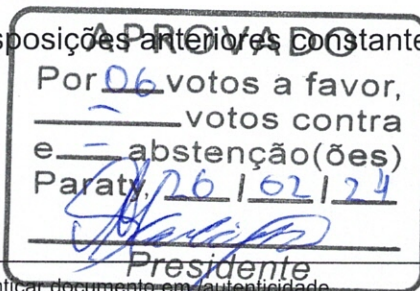 sposições anteriores constante
APROVADO
Por 06 votos a favor,
— votos contra
e — abstenção(ões)
Paraty, 26 / 02 / 24
Presidente
nticar documento em /autenticidade